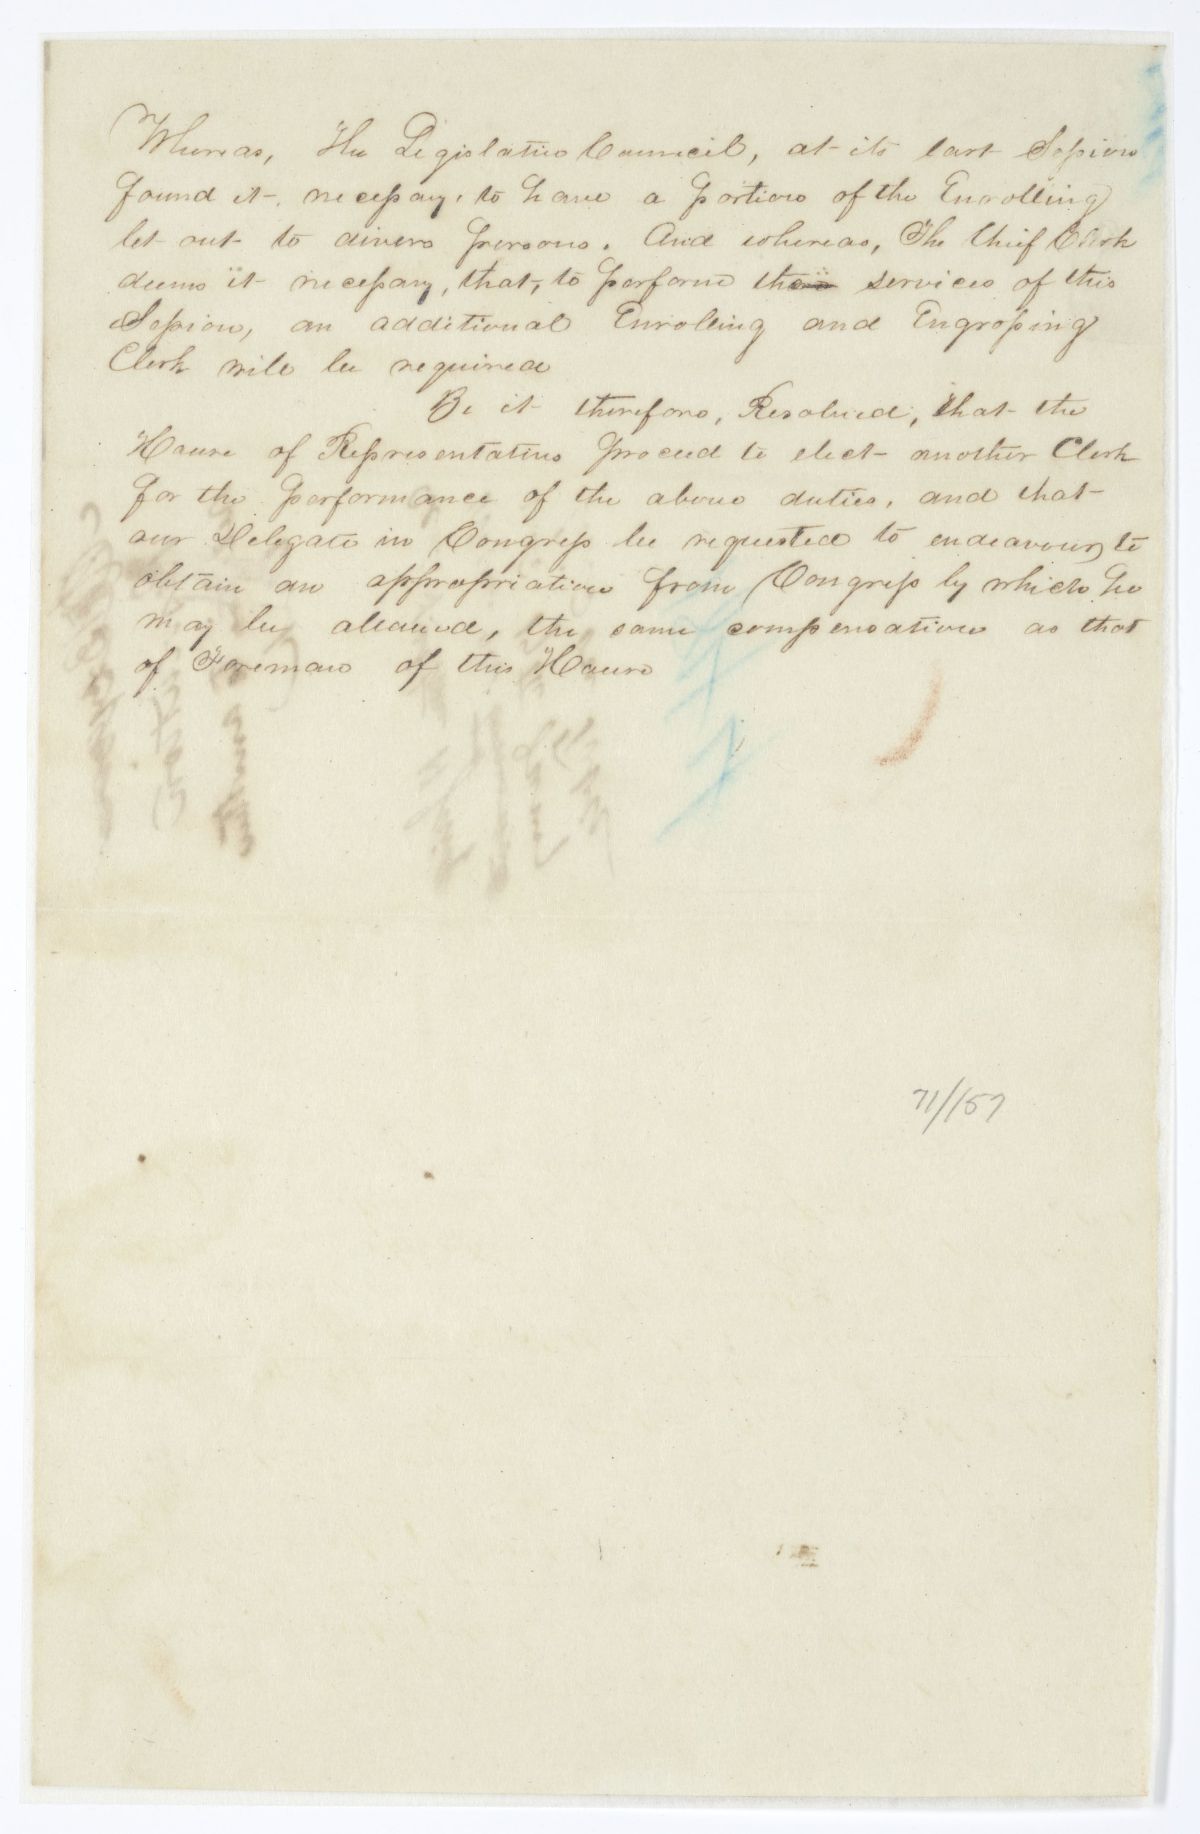 Whereas, The Legislative Council, at its last Session
found it, necessary, to have a portion of the Enrolling
let out to divers persons. And whereas, The Chief Clerk
deems it necessary, that, to perform services of this
Session, an additional Enrolling and Engrossing
Clerk will be required
Be it therefore, Resolved, that the
House of Representatives proceed to elect another Clerk
for the performance of the above duties, and that
our Delegate in Congress be requested to endeavour, to
obtain an appropriation from Congress by which he
may be allowed, the same compensation as that
of Foreman of this House
71/157